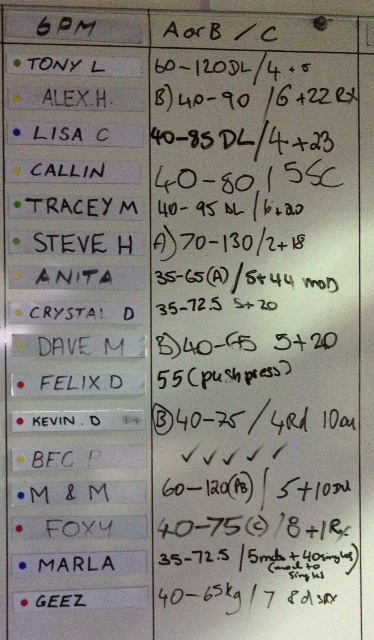 6PM A or B / C
TONY L 60-120DL/4+5
ALEX.H. B) 40-90 /6+22 Rx
LISA C 40-85 DL/4+23
CALLIN 40-80 / 5SC
TRACEY M 40-95 DL /6+20
STEVE H A) 70-130/2+18
ANITA 35-65(A) /5+44 mod
CRYSTAL D 35-72.5 5+20
DAVE M B) 40-65 5+20
FELIX D 55 (push press)
KEVIN.D (B) 40-75 / 4Rd 10
BEC P ✓ ✓ ✓ ✓ ✓
M & M 60-120 / 5+10
FOXY 40-75(C) /8+1 Rx
MARLA 35-72.5 /5 + 40singles)
(mod to
singles
GEEZ 40-65kg / 7